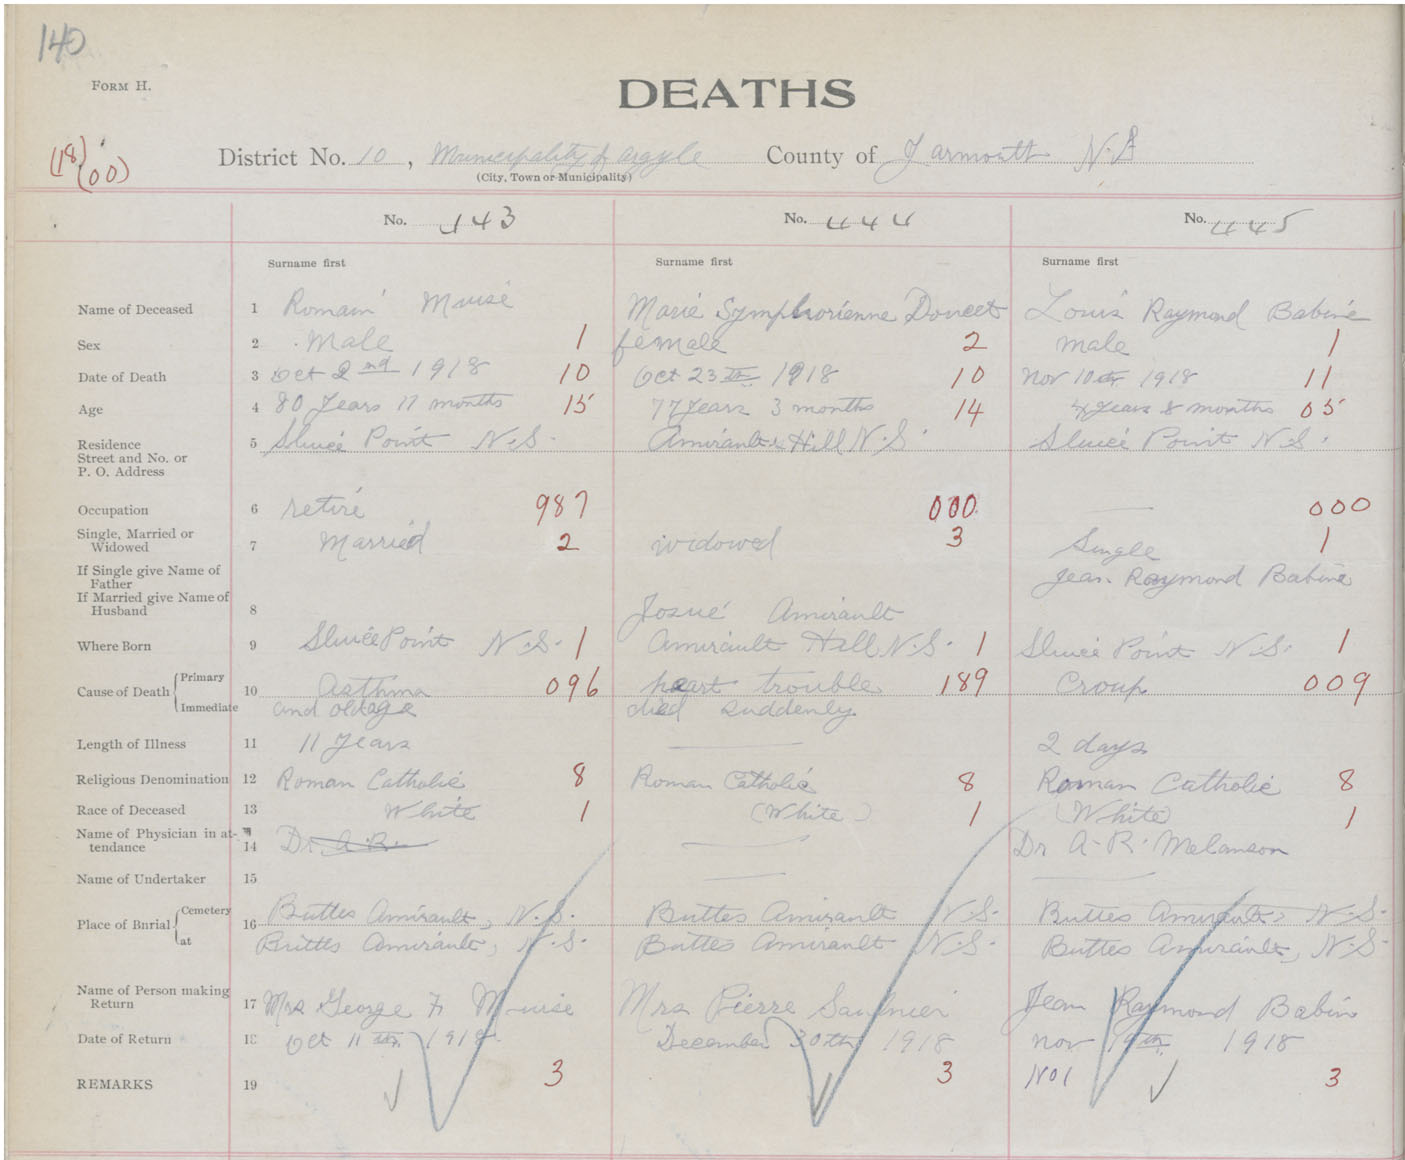 140
FORM H.
DEATHS
(18)
(00)
District No. 10, Municipality of Argyle County of Yarmouth N.S
(City, Town or Municipality)
No. 443 No. 444 No. 445
Surname first Surname first Surname first
Name of Deceased 1 Romain Muise Marie Symphorienne Doucet Louis Raymond Babine
Sex 2 Male 1 female 2 male 1
Date of Death 3 Oct 2nd 1918 10 Oct 23th 1918 10 Nov 10th 1918 11
Age 4 80 years 11 months 15 77 years 3 months 14 4 years 8 months 05
Residence 5 Sluice Point N.S. Amirault's Hill N.S. Sluice Point N.S.
Street and No. or
P. O. Address
Occupation 6 retire 987 000 000
Single, Married or
Widowed 7 Married 2 widowed 3 Single 1
If Single give Name of
Father Jean Raymond Babine
If Married give Name of
Husband 8 Josué Amirault
Where Born 9 Sluice Point N.S. 1 Amirault Hill N.S. 1 Sluice Point N.S. 1
Cause of Death Primary 10 Asthma 096 heart trouble 189 Croup 009
Immediate and old age died suddenly
Length of Illness 11 11 years 2 days
Religious Denomination 12 Roman Catholic 8 Roman Catholic 8 Roman Catholic 8
Race of Deceased 13 White 1 (White) 1 (White) 1
Name of Physician in at-
tendance 14 Dr. A. R. Dr A. R. Melanson
Name of Undertaker 15
Place of Burial Cemetery 16 Buttes Amirault, N.S. Buttes Amirault N.S. Buttes Amirault, N.S.
at Buttes Amirault, N.S. Buttes Amirault N.S. Buttes Amirault, N.S.
Name of Person making
Return 17 Mrs George F Muise Mrs Pierre Saulnier Jean Raymond Babine
Date of Return 18 Oct 11th 1918 December 30th 1918 Nov 19th 1918
REMARKS 19 3 3 No 1 3